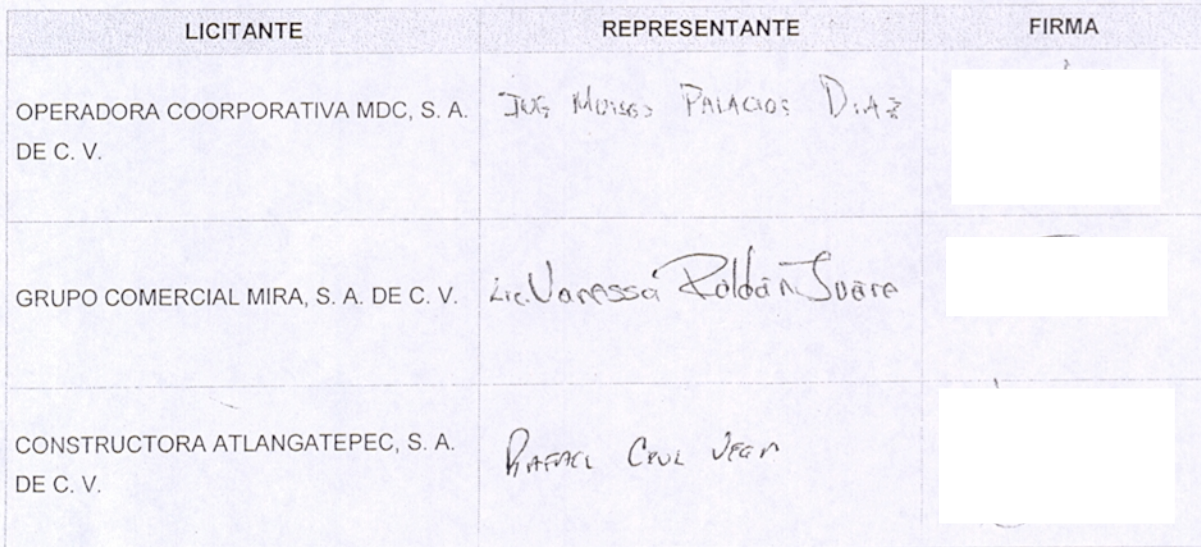 LICITANTE REPRESENTANTE FIRMA
OPERADORA COORPORATIVA MDC, S. A. ING Moises PALACIOS DIAZ
DE C. V.
GRUPO COMERCIAL MIRA, S. A. DE C. V. Lic. Vanessa Roldán Juáre
CONSTRUCTORA ATLANGATEPEC, S. A. RAFAEL CRUZ VEGA
DE C. V.